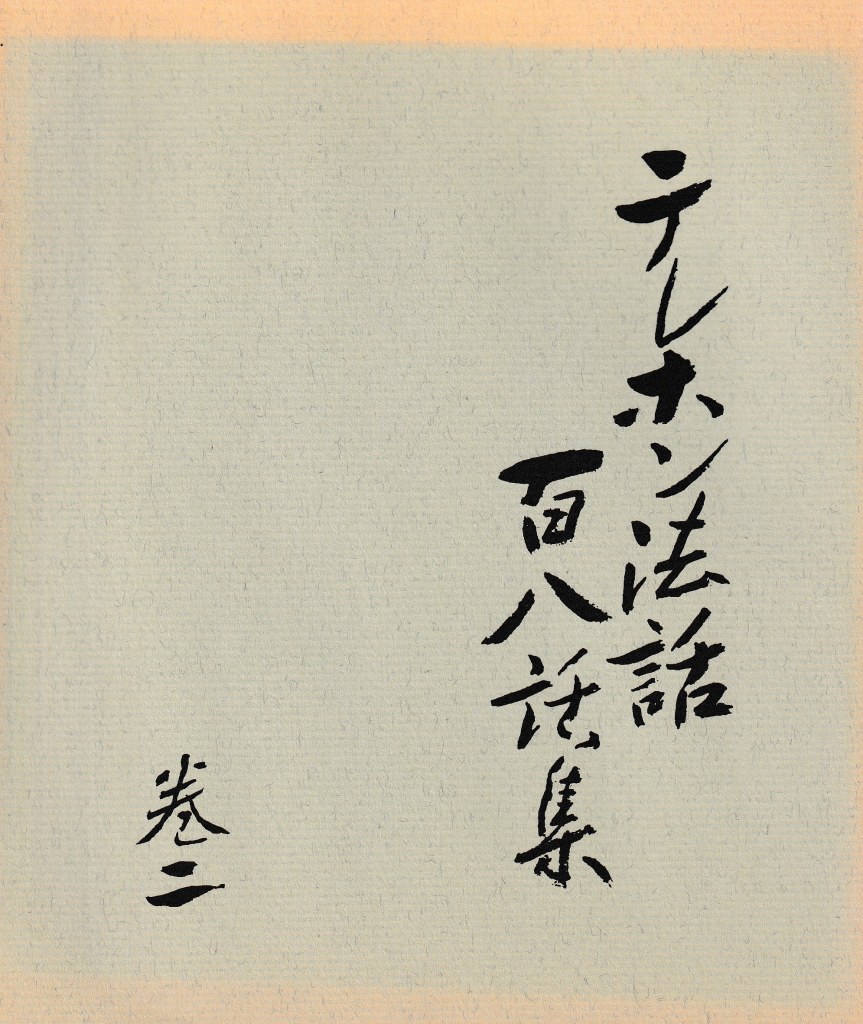 テレホン法話
百八話集
巻二